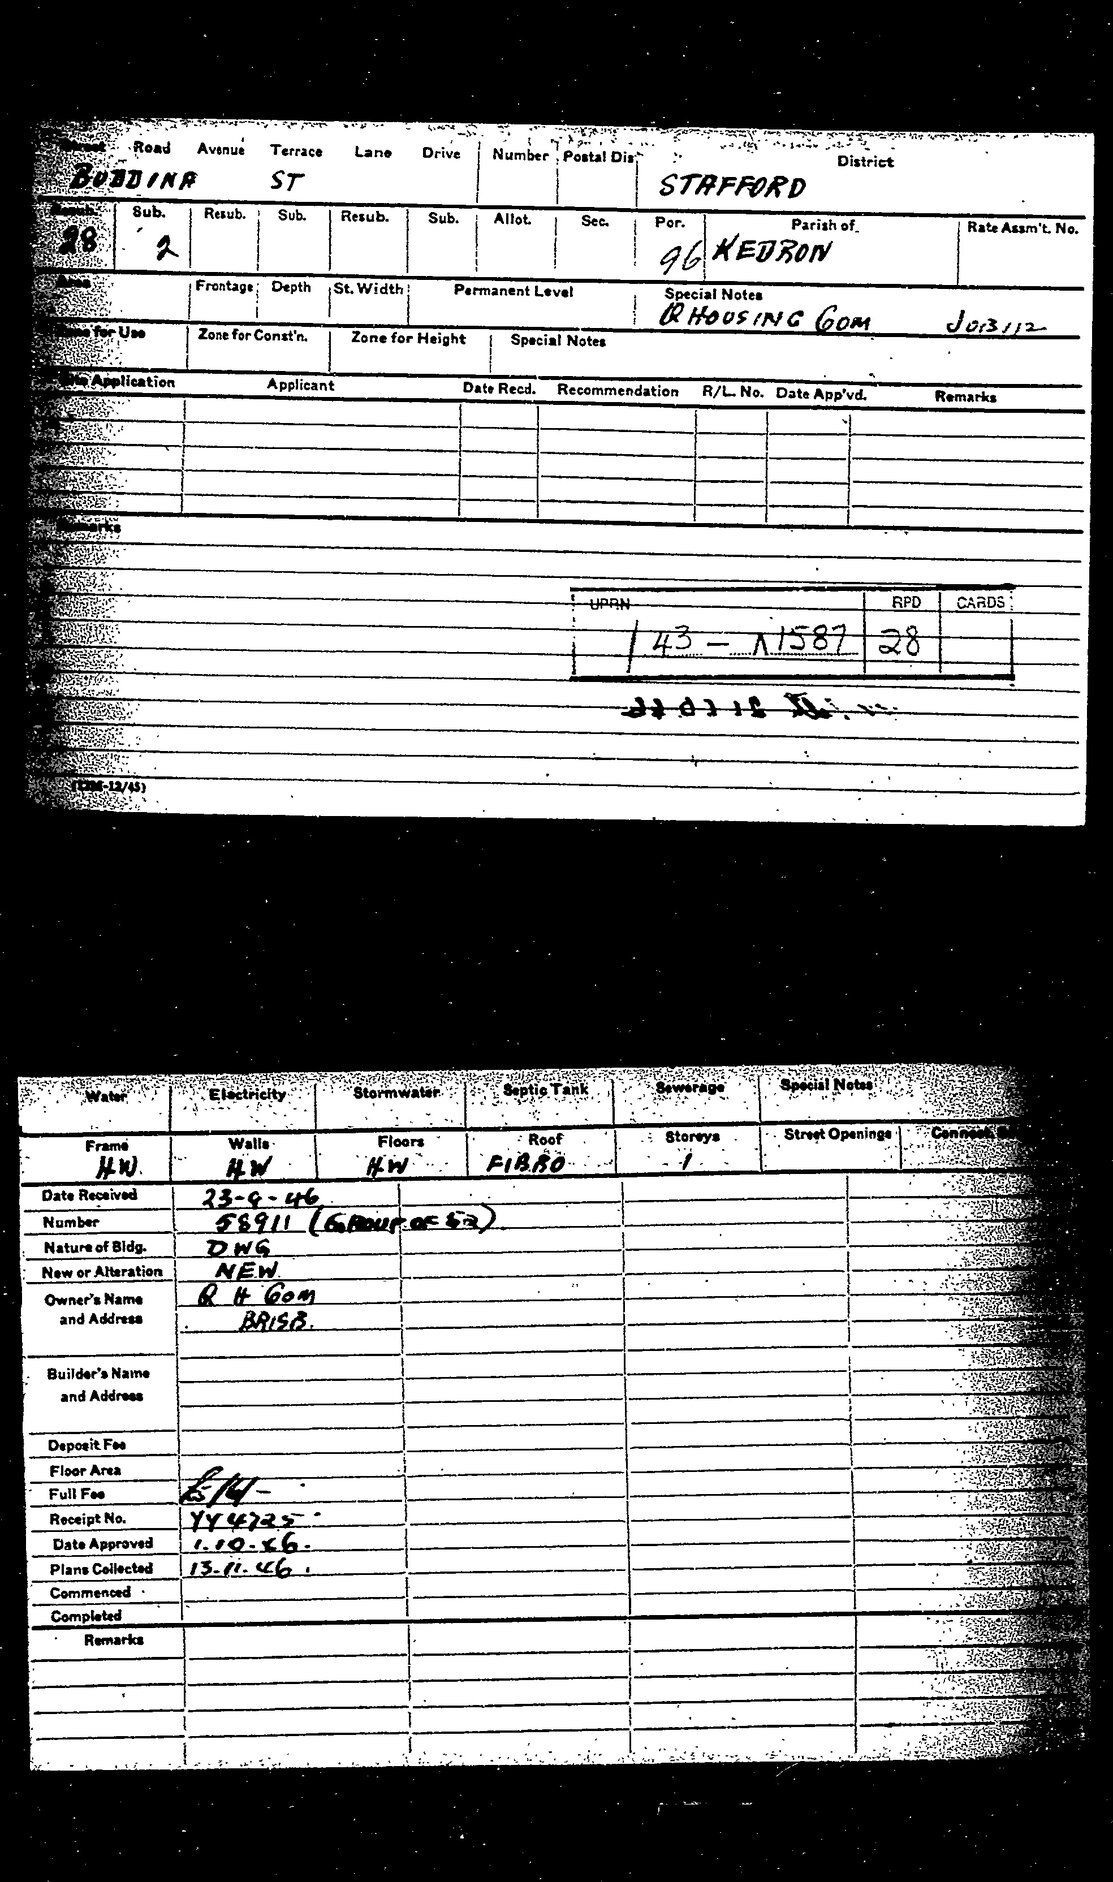 Street Road Avenue Terrace Lane Drive Number Postal Dis. District
BUDDINA ST STAFFORD
Resub. Sub. Resub. Sub. Resub. Sub. Allot. Sec. Por. Parish of Rate Assm't. No.
28 2 96 KEDRON
Area Frontage Depth St. Width Permanent Level Special Notes
Q HOUSING COM JOB 112
Zone for Use Zone for Const'n. Zone for Height Special Notes
Site Application Applicant Date Recd. Recommendation R/L. No. Date App'vd. Remarks
Remarks
UPRN RPD CARDS
43 - 1587 28
Water Electricity Stormwater Septic Tank Sewerage Special Notes
Frame Walls Floors Roof Storeys Street Openings Connect.
H.W. H.W H.W FIBRO 1
Date Received 23-9-46
Number 58911 (GROUP OF 52)
Nature of Bldg. DWG
New or Alteration NEW
Owner's Name Q H COM
and Address BRISB.
Builder's Name
and Address
Deposit Fee
Floor Area
Full Fee
Receipt No. YY4725
Date Approved 1.10.46.
Plans Collected 13.11.46.
Commenced
Completed
Remarks